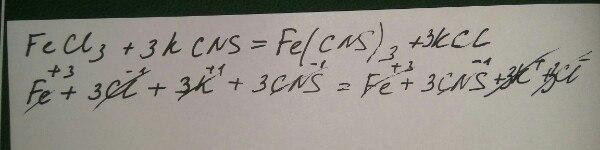 FeCl₃ + 3KCNS = Fe(CNS)₃ + 3KCl
Fe⁺³ + 3Cl⁻¹ + 3K⁺¹ + 3CNS⁻¹ = Fe⁺³ + 3CNS⁻¹ + 3K⁺ + 3Cl⁻